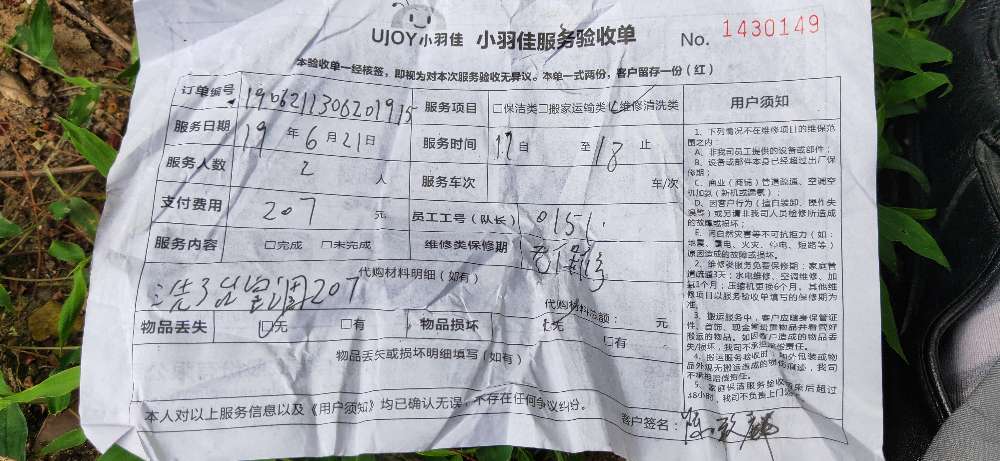 UJOY小羽佳 小羽佳服务验收单 No. 1430149
本验收单一经核签，即视为对本次服务验收无异议。本单一式两份，客户留存一份（红）
订单编号 1906211306201915 服务项目 □保洁类□搬家运输类☑维修清洗类
服务日期 19 年 6 月 21 日 服务时间 17 自 至 18 止
服务人数 2 人 服务车次 车/次
支付费用 207 元 员工工号（队长） 0151
服务内容 □完成 □未完成 维修类保修期
代购材料明细（如有）
207
代购材料总额： 元
物品丢失 ☑无 □有 物品损坏 ☑无 □有
物品丢失或损坏明细填写（如有）
本人对以上服务信息以及《用户须知》均已确认无误，不存在任何争议纠纷。
客户签名：
用户须知
1、下列情况不在维修项目的维保范
围之内
A、非我司员工提供的设备或部件；
B、设备或部件本身已经超过出厂保
修期；
C、商业（商铺）管道疏通、空调空
机加氨（新机或漏氨）；
D、因客户行为（擅自装卸、操作失
误等）或另请非我司人员检修所造成
的故障或损坏；
E、词自然灾害等不可抗拒力（如：
地震、雷电、火灾、停电、短路等）
原因造成的故障或损坏。
2、维修类服务免费保修期：家庭管
道疏通3天；水电维修、空调维修、加
氨1个月；压缩机更换6个月，其他维
修项目以服务验收单填写的保修期为
准。
3、搬运服务中，客户应随身保管证
件、首饰、现金等贵重物品并看管好
搬运的物品。如因客户造成的物品丢
失/损坏，我司不承担赔偿责任。
4、搬运服务验收时，如外包装或物
品外观无搬运造成的物伤痕迹，我司
不承担赔偿责任。
5、家庭保洁服务验收结束后超过
48小时，我司不负责上门